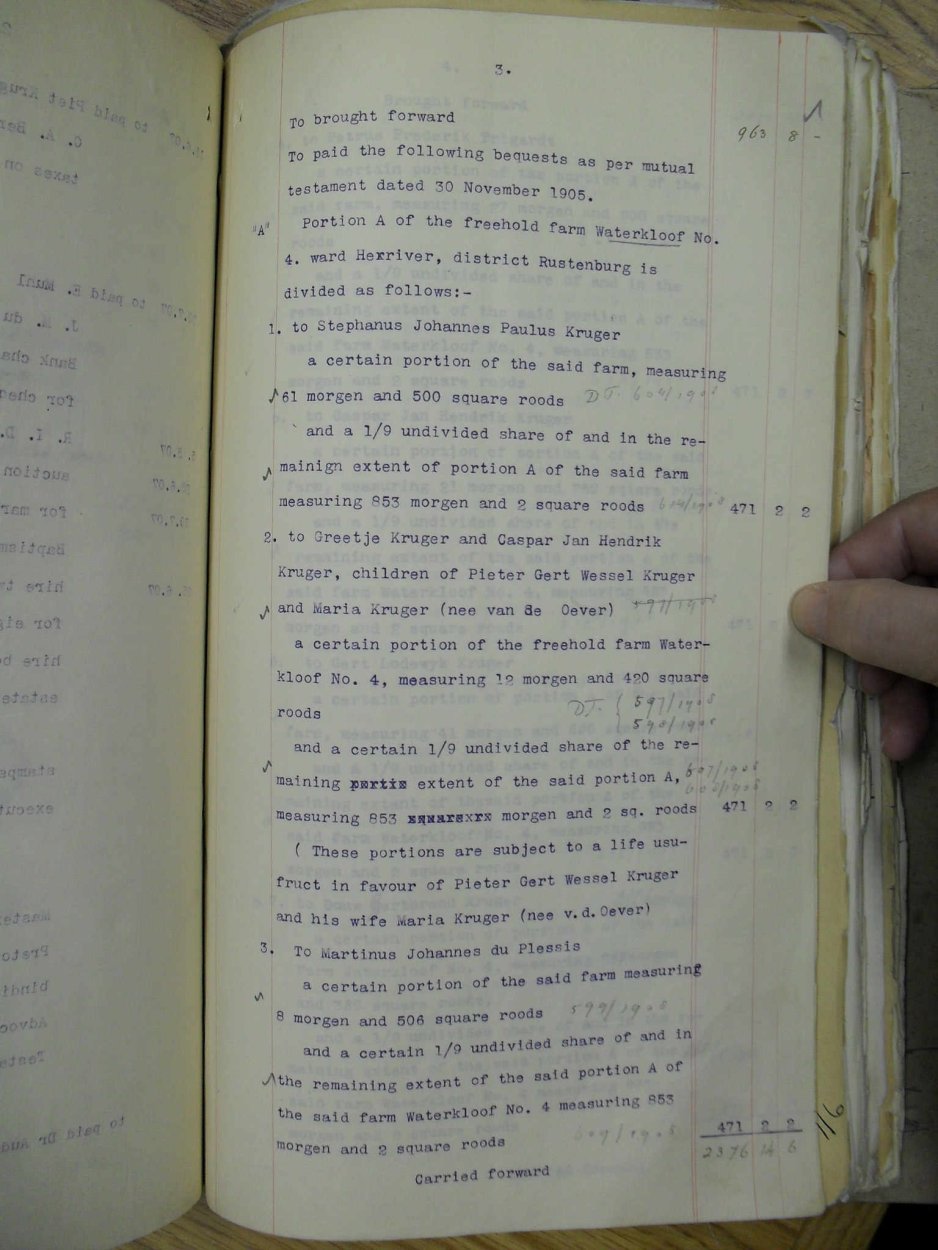 3.
To brought forward 963 8 -
To paid the following bequests as per mutual
testament dated 30 November 1905.
"A" Portion A of the freehold farm Waterkloof No.
4. ward Hexriver, district Rustenburg is
divided as follows:-
1. to Stephanus Johannes Paulus Kruger
a certain portion of the said farm, measuring
61 morgen and 500 square roods DT. 604/1908
and a 1/9 undivided share of and in the re-
mainign extent of portion A of the said farm
measuring 853 morgen and 2 square roods 604/1908 471 2 2
2. to Greetje Kruger and Caspar Jan Hendrik
Kruger, children of Pieter Gert Wessel Kruger
and Maria Kruger (nee van de Oever) 597/1908
a certain portion of the freehold farm Water-
kloof No. 4, measuring 12 morgen and 420 square
roods DT. { 597/1908
598/1908
and a certain 1/9 undivided share of the re-
maining extent of the said portion A, 607/1908
608/1908
measuring 853 morgen and 2 sq. roods 471 2 2
( These portions are subject to a life usu-
fruct in favour of Pieter Gert Wessel Kruger
and his wife Maria Kruger (nee v.d.Oever)
3. To Martinus Johannes du Plessis
a certain portion of the said farm measuring
8 morgen and 506 square roods 599/1908
and a certain 1/9 undivided share of and in
the remaining extent of the said portion A of
the said farm Waterkloof No. 4 measuring 853
morgen and 2 square roods 609/1908 471 2 2
2376 14 6
Carried forward
116